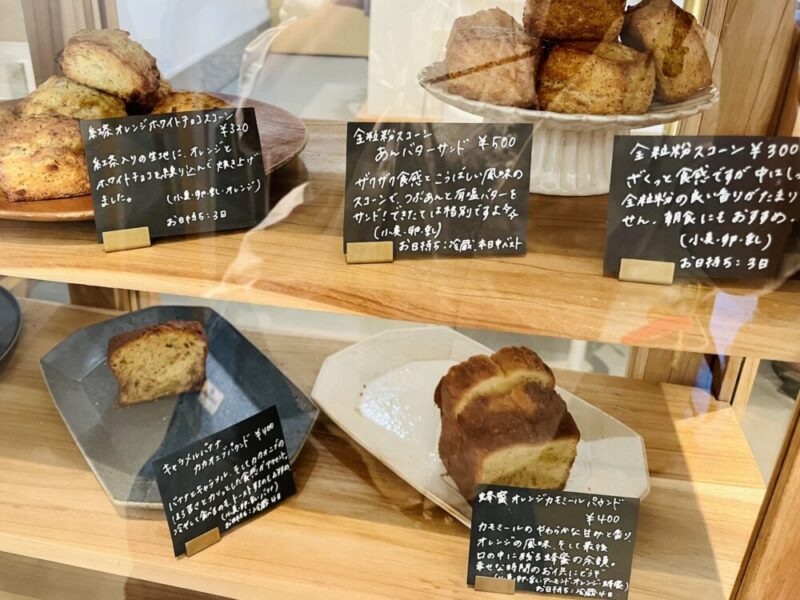 紅茶オレンジホワイトチョコスコーン
¥320
紅茶入りの生地に、オレンジと
ホワイトチョコを練り込んで焼き上げ
ました。
(小麦・卵・乳・オレンジ)
お日持ち:3日
全粒粉スコーン
あんバターサンド ¥500
ザクザク食感とこうばしい風味の
スコーンで、つぶあんと有塩バターを
サンド!できたては格別ですよ
(小麦・卵・乳)
お日持ち:冷蔵、本日中ベスト
全粒粉スコーン ¥300
ざくっと食感ですが中はしっ
全粒粉の良い香りがたまり
せん。朝食にもおすすめ。
(小麦・卵・乳)
お日持ち:3日
キャラメルバナナ
カカオニブパウンド ¥400
バナナとキャラメル、そしてカカオニブの
冷やして食べるもトーストするもおすすめ。
(小麦・卵・乳・バナナ)
お日持ち:冷蔵4日
蜂蜜オレンジカモミールパウンド
¥400
カモミールのやわらかな甘みと香り
オレンジの風味、そして最後
口の中に残る蜂蜜の余韻。
幸せな時間のお供にどうぞ
(小麦・卵・乳・アーモンド・オレンジ・蜂蜜)
お日持ち:冷蔵4日